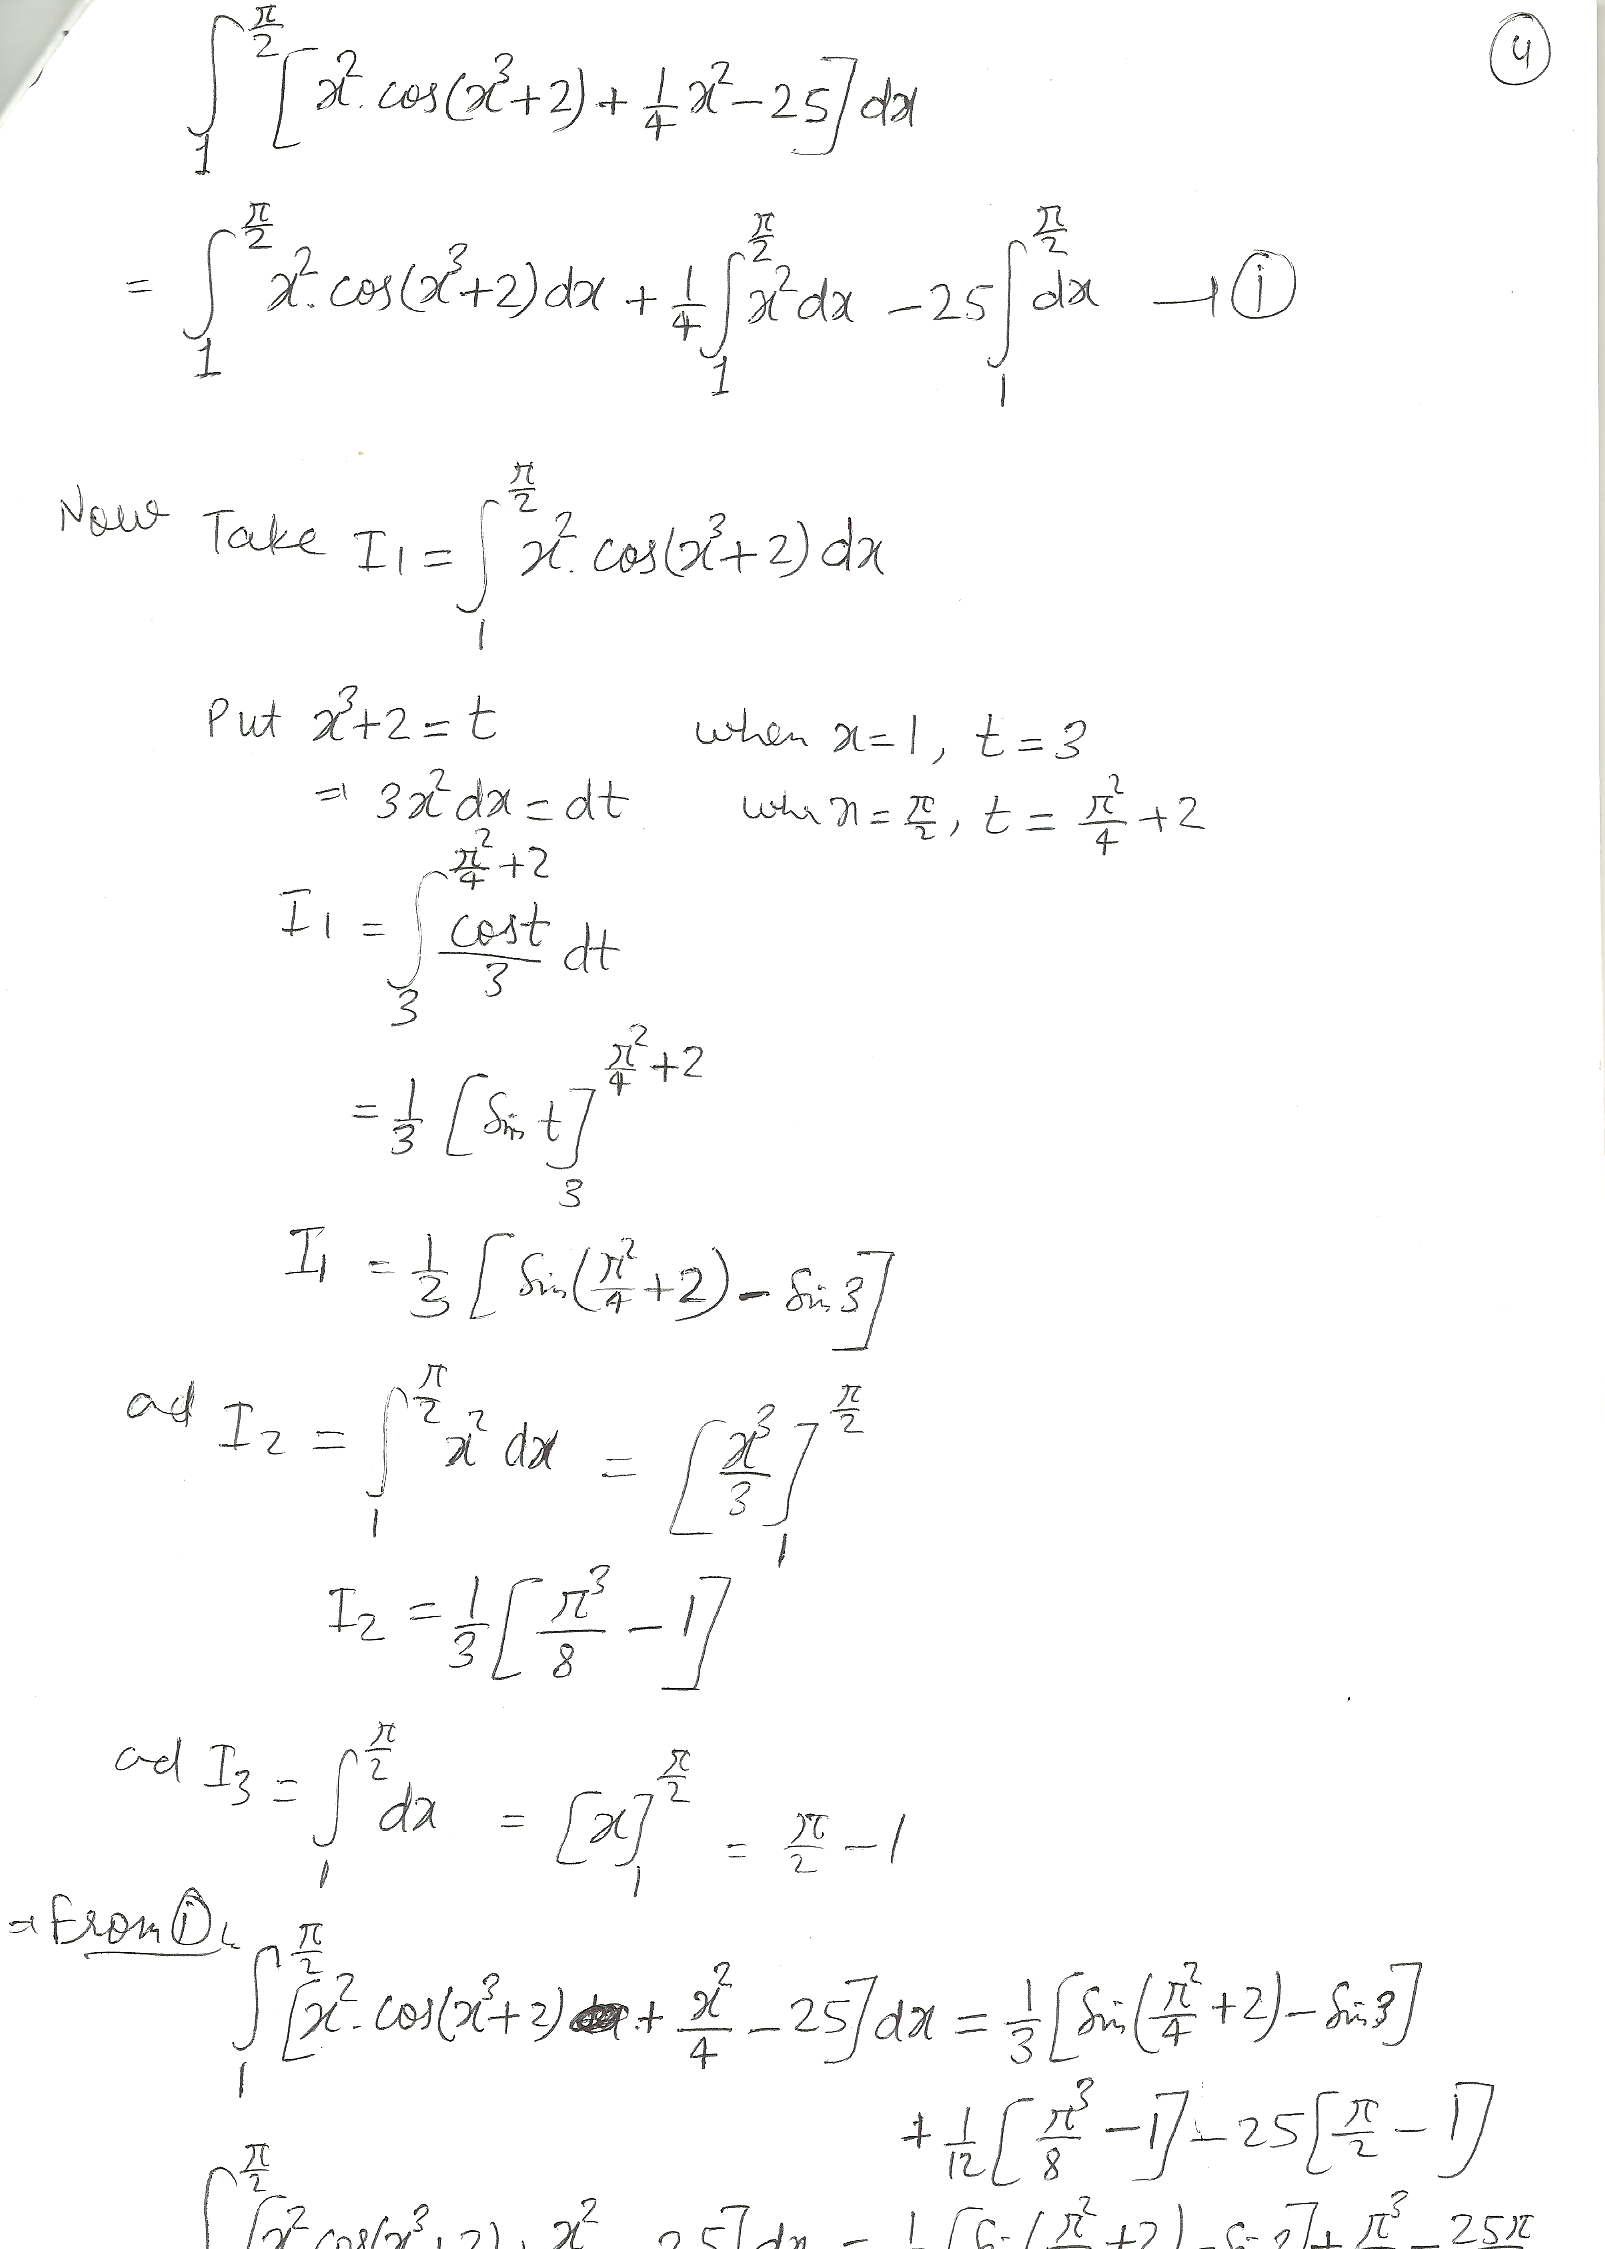 ④
∫₁^{π/2} [x².cos(x³+2) + 1/4 x² − 25] dx
= ∫₁^{π/2} x².cos(x³+2) dx + 1/4 ∫₁^{π/2} x² dx − 25 ∫₁^{π/2} dx → ⓘ
Now Take I₁ = ∫₁^{π/2} x².cos(x³+2) dx
Put x³+2 = t when x=1, t=3
⇒ 3x² dx = dt whe x = π/2, t = π²/4 + 2
I₁ = ∫₃^{π²/4 + 2} cost/3 dt
= 1/3 [Sin t]₃^{π²/4 + 2}
I₁ = 1/3 [Sin(π²/4 + 2) − Sin 3]
ad I₂ = ∫₁^{π/2} x² dx = [x³/3]₁^{π/2}
I₂ = 1/3 [π³/8 − 1]
ad I₃ = ∫₁^{π/2} dx = [x]₁^{π/2} = π/2 − 1
⇒ From ⓘ
∫₁^{π/2} [x².cos(x³+2) + x²/4 − 25] dx = 1/3 [Sin(π²/4 + 2) − Sin 3]
+ 1/12 [π³/8 − 1] − 25 [π/2 − 1]